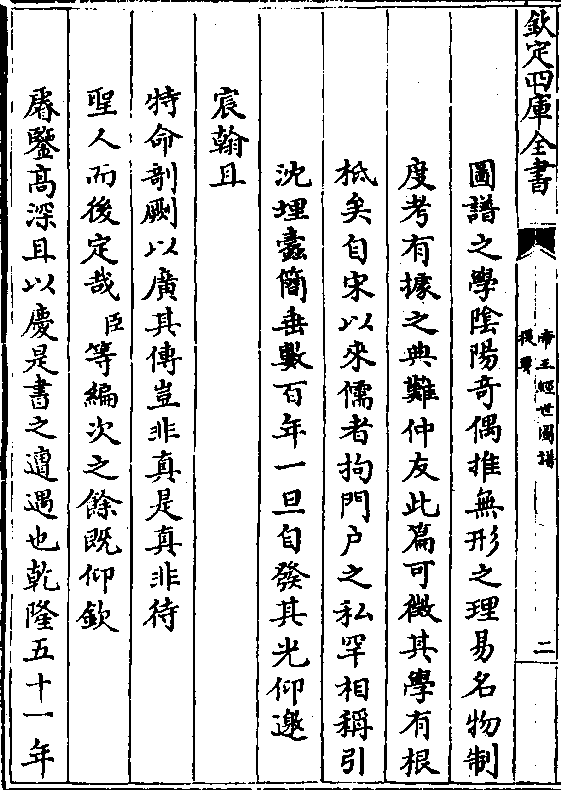 欽定四庫全書
帝王經世圖譜
提要
二
圖譜之學陰陽奇偶推無形之理易名物制
度考有據之典難仲友此篇可徴其學有根
柢矣自宋以來儒者拘門户之私罕相稱引
沈埋蠧簡垂數百年一旦自發其光仰邀
宸翰且
特命剞劂以廣其傳豈非真是真非待
聖人而後定哉臣等編次之餘既仰欽
睿鑒髙深且以慶是書之遭遇也乾隆五十一年